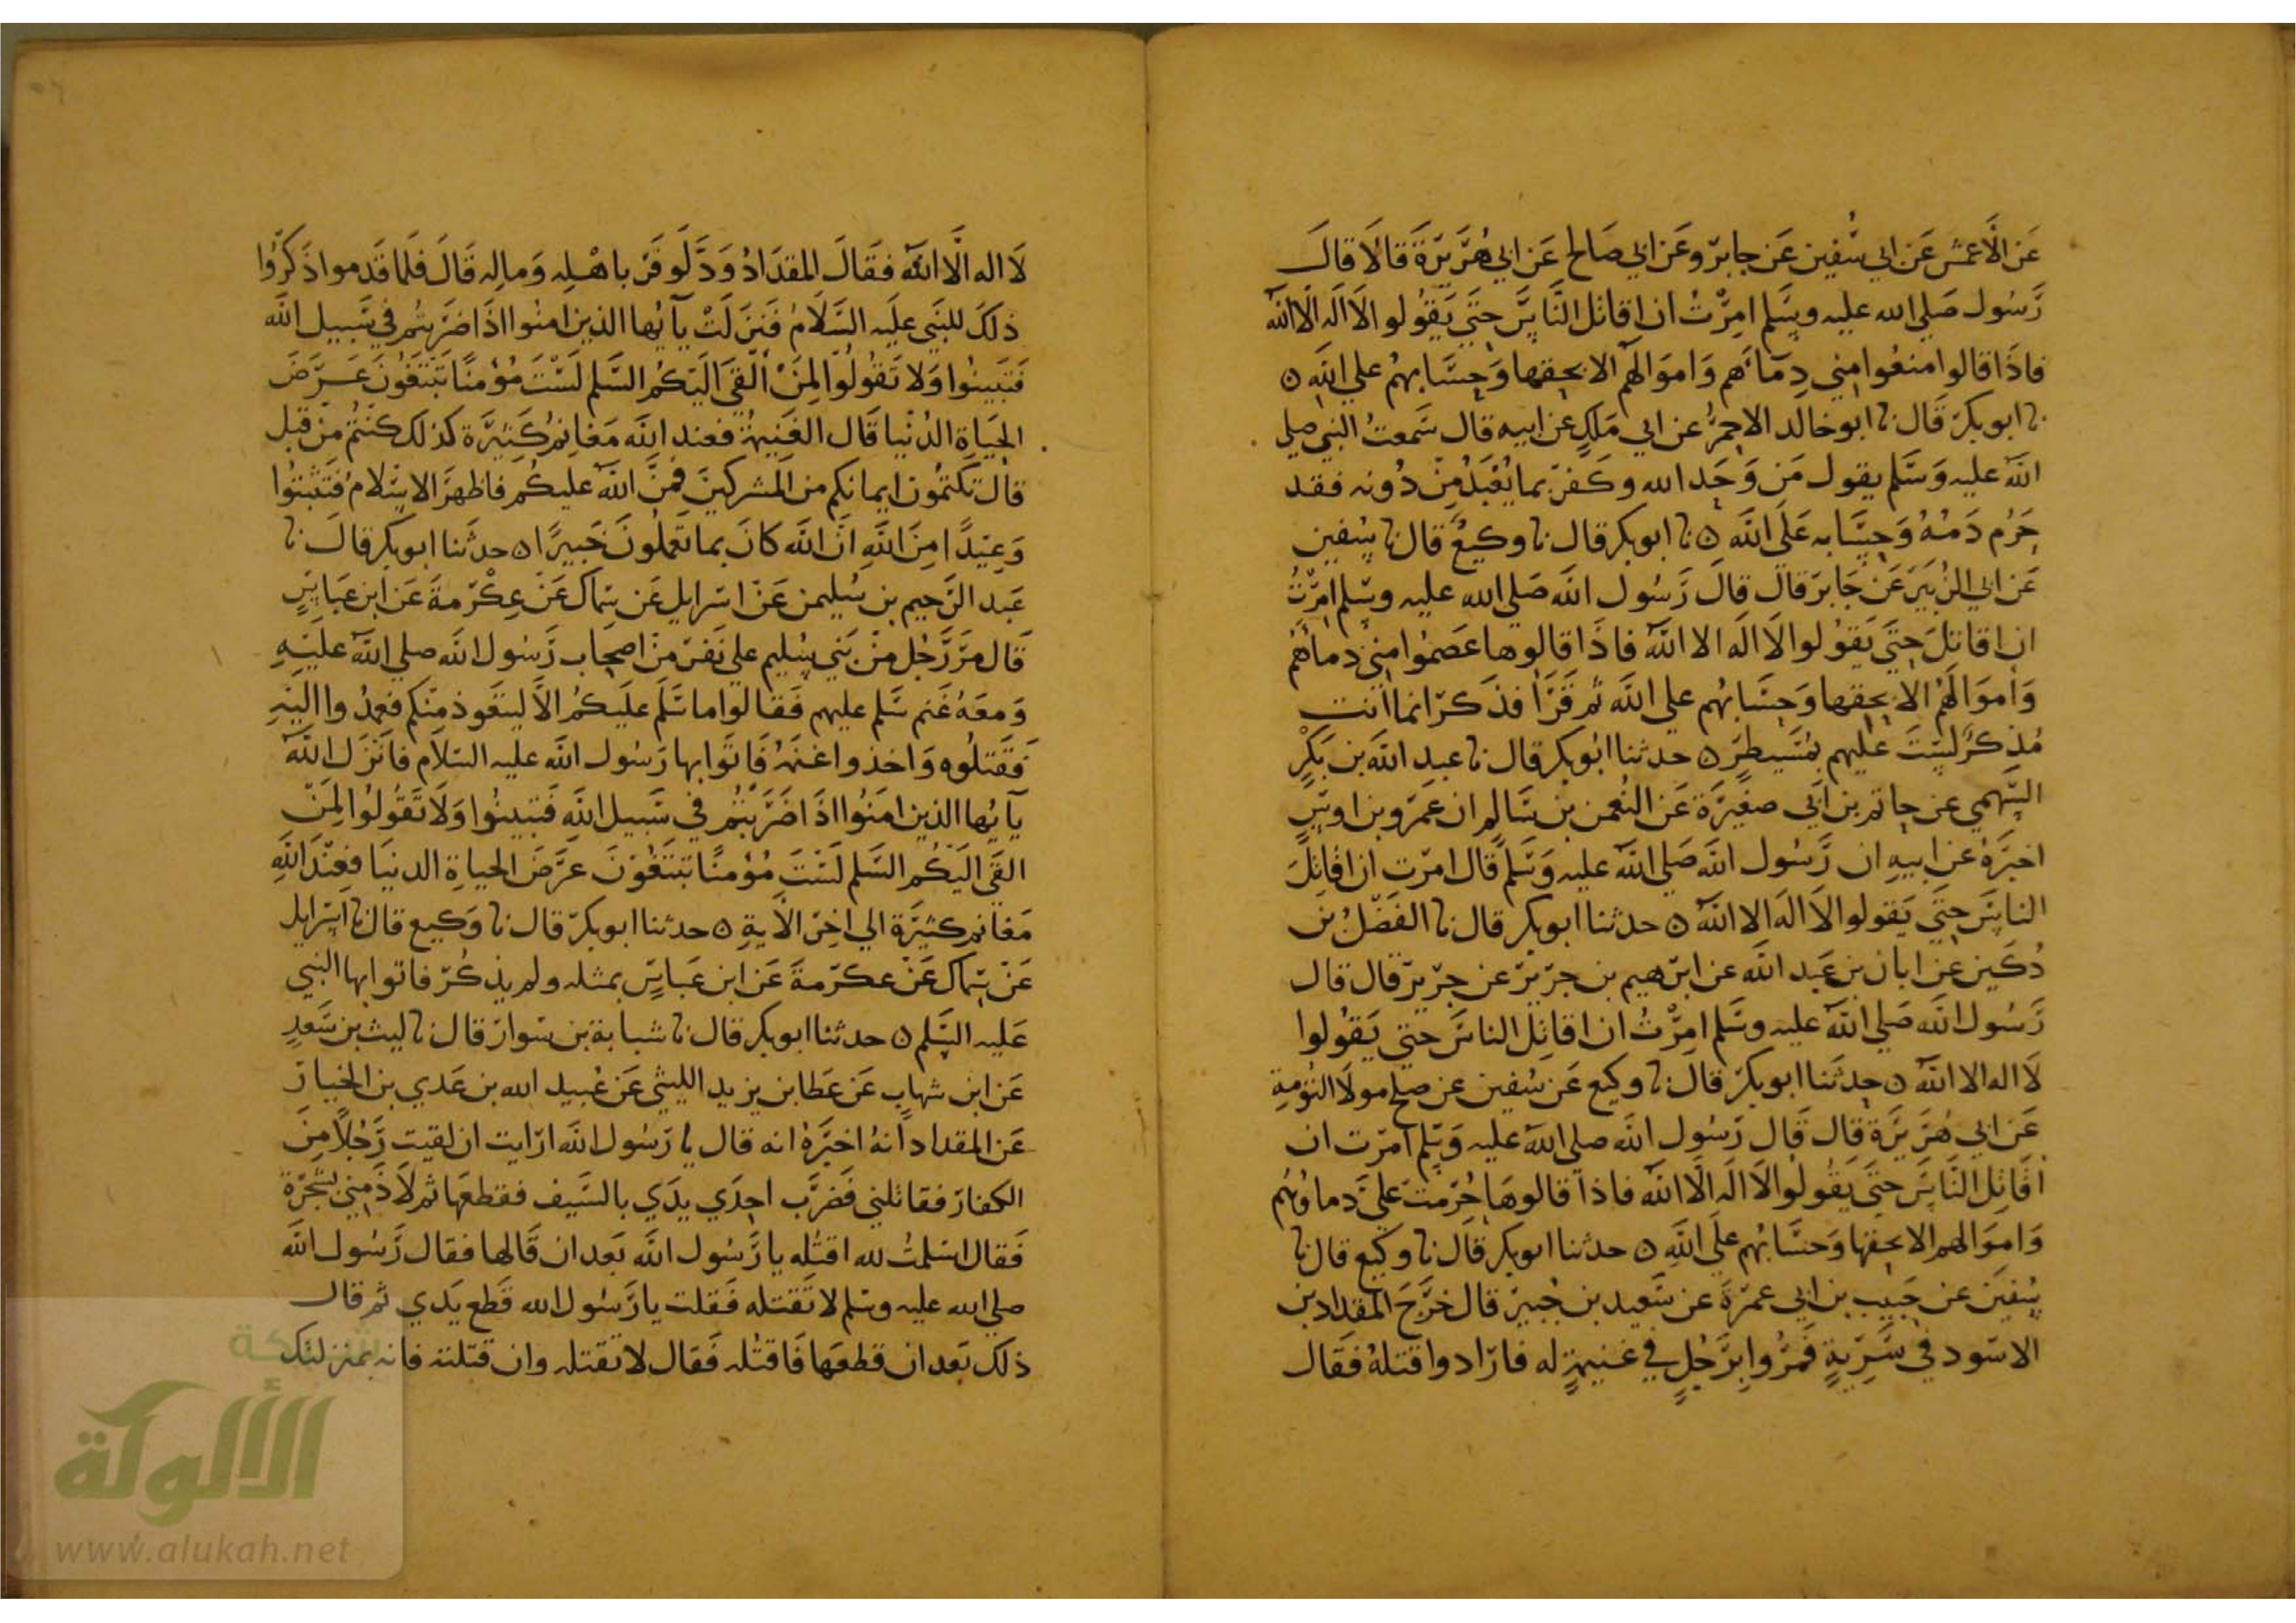 عَن الأعمش عَن ابي سُفين عَن جابر وعَن ابي صَالح عَن ابي هُرَيرَة قالا قالَ
رَسُول صَلي الله عليه وسَلم امِرْتُ ان اقاتل النَّاسَ حتَي يَقُولو الا الَه الا الله
فاذَا قالوا منعُوا مِني دِمَاهَم وَاموَالهم الا بحقها وَحِسَابهُم علي الله ه
نا ابو بكر قَال نا ابو خالد الاحمرُ عن ابي مَلكٍ عن ابيه قال سَمعتُ النبي صلي
الله عليه وَسَلم يقول مَن وَحَد الله وكَفر بما يُعْبَدُ مِنْ دُونه فقد
حَرُم دَمُهُ وَحِسَابه عَلَي الله ه نا ابو بكر قال نا وكيعٌ قال نا سُفين
عَن ابي الزُبَير عَن جَابر قالَ قالَ رَسُول الله صَلي الله عليه وسَلم امِرْتُ
ان اقاتِلَ حتَي يَقوُلوا لا الَه الا الله فاذَا قالوها عَصمُوا مِني دماهُم
وَاموَالهُم الا بحقها وَحِسَابهُم علي الله ثم قَرَأ فذكر انما انت
مُذكرٌ لستَ عَليهم بمُسَيطرٍ ه حدثنا ابُو بكر قال نا عبد الله بن بَكرٍ
السَهمي عن حاتم بن ابي صغيرَة عَن النُعمن بن سَالم ان عَمرَو بن اوسٍ
اخبَرهُ عن ابيهِ ان رَسُول الله صَلي الله عليه وَسَلم قال امرت ان اقاتِلَ
الناسَ حتَي يَقولوا لا الَه الا الله ه حدثنا ابو بكر قال نا الفَضْلُ بن
دُكَين عن ابان بن عَبد الله عن ابرَهيم بن جرَير عن جرير قال قال
رَسُول الله صَلي الله عليه وسَلم امِرْتُ ان اقاتِل الناسَ حتي يَقوُلوا
لا اله الا الله ه حدثَنا ابو بكر قالَ نا وكيع عَن سُفين عن صلح مولا التؤمة
عَن ابي هُرَيرَة قال قَال رَسُول الله صلي الله عليه وَسلم امرت ان
اقَاتِل النَاسَ حتَي يَقولوا لا الَه الا الله فاذا قالوهَا حُرّمتَ عَليَّ دماوهُم
وَاموَالهم الا بحقها وَحسَابهُم علَي الله ه حدثنا ابو بكر قَال نا وكيع قال نا
سُفيَن عن حَبيب بن ابي عمرَةَ عن سَعيد بن جُبير قال خرَجَ المقدَاد بن
الاسَود في سَرِيةٍ فَمرُوا برَجُلٍ في غنيمةٍ له فارَادوا قتلهُ فقَال
لاَ اله الا الله فقَالَ المقدَادُ وَدَّ لَو فَرَّ باهْلِه وَمالِه قَالَ فلَما قَدموا ذَكرُوا
ذلكَ للنَبي عليَه السَلامُ فَنَزلَتْ يآيُها الذين امنُوا اذَا ضَرَبتُم في سَبيل الله
فتَبَينُوا وَلا تَقُولُوا لمَنْ ألقَي اليَكُم السَلم لَسْتَ مُؤمنًا تَبتَغُونَ عَرَضَ
الحَيَاةِ الدُنْيا قَال الغَنيمةُ فعند الله مَغانمُ كَثِيرَة كذلك كنتُم مِنْ قبل
قال تكتمُون ايمانكم من المشركينَ فَمنَّ الله عليكُم فاظهرَ الاسْلامُ فَتَثبتُوا
وَعِيدًا مِنَ اللهِ انَّ الله كانَ بما تَعملُونَ خَبيرًا ه حدثنا ابو بكر قالَ نا
عَبد الرَحيم بن سُليمن عَنْ اسرايل عَن سماك عَنْ عِكْرمةَ عَن ابن عبَاسٍ
قَال مَرَّ رَجُل مِنْ بَني سُليم علي نَفر مَن اصحاب رَسُول الله صلي الله عليَهِ
وَمعَهُ غَنم سَلم عليهم فَقالوا ما سَلَم علَيكُم الاَّ ليتعَوذ مِنكم فعمدُوا اليَهِ
فَقَتلُوه وَاخذوا غنمَهُ فَاتَوا بها رَسُول الله عليه السَلام فانَزَل الله
يآيُها الذين امَنُوا اذَا ضَرَبتُم في سَبيل اللهِ فَتبينُوا وَلا تَقُولُوا لمَنْ
القَي اليَكُم السَلم لَسْتَ مُؤمنًا تَبتَغُونَ عرَضَ الحياةِ الدنيَا فعِنْدَ اللهِ
مَغانم كثيَرة الي اخِر الآيةِ ه حدثنا ابو بكر قال نا وَكيع قال نا اسرايل
عَنْ سماك عَنْ عكرمةَ عَن ابن عبَاسٍ بمثله ولم يذكُر فاتوا بها النبي
عَليه السَلم ه حدثنا ابو بكر قال نا شبابة بن سَوار قال نا ليث بن سَعدٍ
عَن ابن شهابٍ عَن عَطا بن يزيد الليثي عَن عُبيد الله بن عَدي بن الخيار
عَن المقداد انهُ اخبَرهُ انه قال يا رَسُول الله ارَايت ان لقيت رَجُلاً مِنَ
الكفار فقاتلني فضَرَب احدَي يدَي بالسَيف فقطعَها ثم لاذَ مِني بشَجَرة
فَقال اسلمتُ لله اقتلُه يا رَسُول الله بَعد ان قَالها فقال رَسُول الله
صلي الله عليه وسَلم لا تقَتله فَقلت يا رَسُول الله قَطع يَدي ثم قال
ذلك بَعد ان قطعَها فَاقتله فَقال لا تقتله وان قتَلته فانه بمنزلتك
شبكة
الألوكة
www.alukah.net